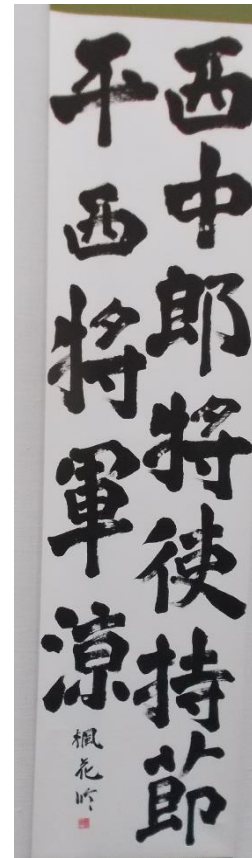 西中郎將使持節
平西將軍涼
楓花吟